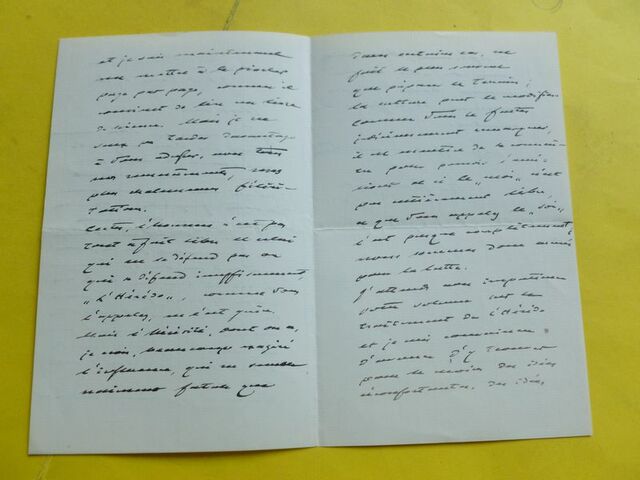 et je vais maintenant
me mettre à le piocher
page par page, comme il
convient de lire un livre
de science. Mais je ne
veux pas tarder davantage
à vous adresser, avec tous
mes remerciements, mes
plus chaleureuses félici-
tations.
Certes, l'homme n'est pas
tout à fait libre et celui
qui ne se défend pas ou
qui se défend insuffisamment
"l'Hérédo", comme vous
l'appelez, ne l'est guère.
Mais l'hérédité, dont on a,
je crois, beaucoup exagéré
l'influence, qui me semble
néanmoins fatale que
dans certains cas, ne
fait le plus souvent
que préparer le terrain;
la culture peut le modifier
comme vous le faites
judicieusement remarquer,
il est maître de le
ou pour pouvoir
si le "moi" n'est
pas entièrement libre,
ce que vous appelez le "soi"
l'est presque complètement;
nous sommes donc armés
pour la lutte.
J'attends avec impatience
votre volume sur le
traitement de l'Hérédo
et je suis convaincu
d'avance d'y trouver
pour le moins des idées
réconfortantes, des idées